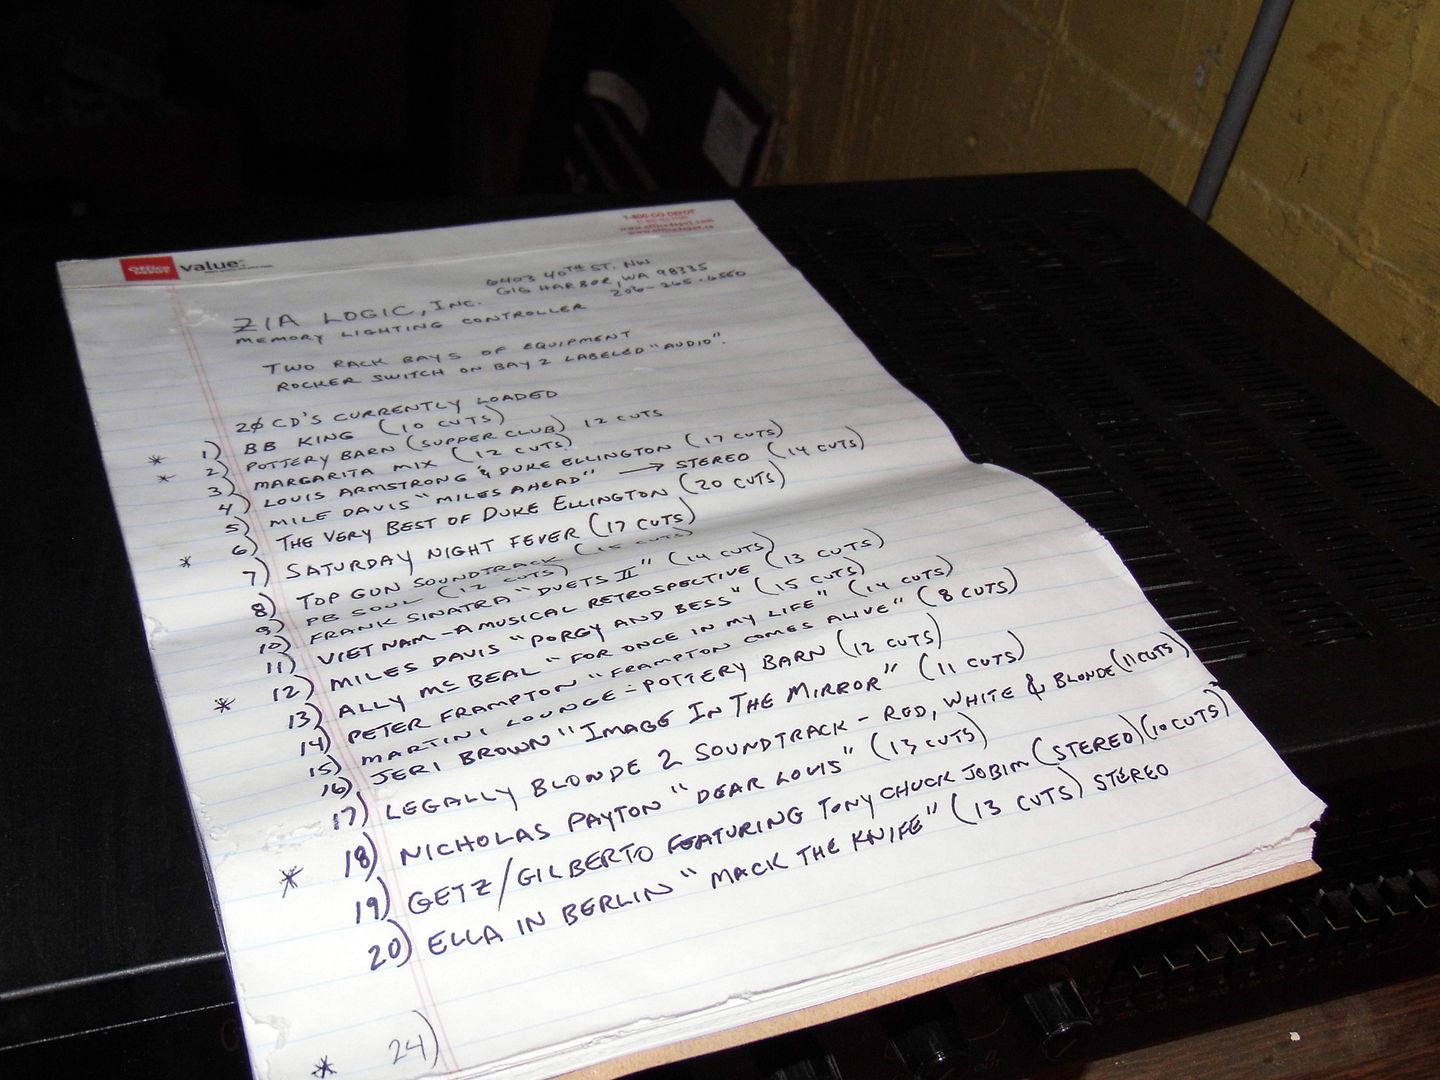 1-800-GO-DEPOT
www.officedepot.com
www.officedepot.ca
Office DEPOT value
6403 40TH ST. NW
GIG HARBOR, WA 98335
206-265-6560
ZIA LOGIC, INC.
MEMORY LIGHTING CONTROLLER
TWO RACK BAYS OF EQUIPMENT
ROCKER SWITCH ON BAY 2 LABELED "AUDIO".
20 CD'S CURRENTLY LOADED
1) BB KING (10 CUTS)
* 2) POTTERY BARN (SUPPER CLUB) 12 CUTS
* 3) MARGARITA MIX (12 CUTS)
4) LOUIS ARMSTRONG & DUKE ELLINGTON (17 CUTS)
5) MILE DAVIS "MILES AHEAD" → STEREO (14 CUTS)
6) THE VERY BEST OF DUKE ELLINGTON (20 CUTS)
* 7) SATURDAY NIGHT FEVER (17 CUTS)
8) TOP GUN SOUNDTRACK (15 CUTS)
9) PB SOUL (12 CUTS)
10) FRANK SINATRA "DUETS II" (14 CUTS)
11) VIETNAM - A MUSICAL RETROSPECTIVE (13 CUTS)
* 12) MILES DAVIS "PORGY AND BESS" (15 CUTS)
13) ALLY McBEAL "FOR ONCE IN MY LIFE" (14 CUTS)
14) PETER FRAMPTON "FRAMPTON COMES ALIVE" (8 CUTS)
15) MARTINI LOUNGE - POTTERY BARN (12 CUTS)
16) JERI BROWN "IMAGE IN THE MIRROR" (11 CUTS)
17) LEGALLY BLONDE 2 SOUNDTRACK - RED, WHITE & BLONDE (11 CUTS)
* 18) NICHOLAS PAYTON "DEAR LOUIS" (13 CUTS)
19) GETZ/GILBERTO FEATURING TONY CHUCK JOBIM (STEREO) (10 CUTS)
20) ELLA IN BERLIN "MACK THE KNIFE" (13 CUTS) STEREO
* 24)